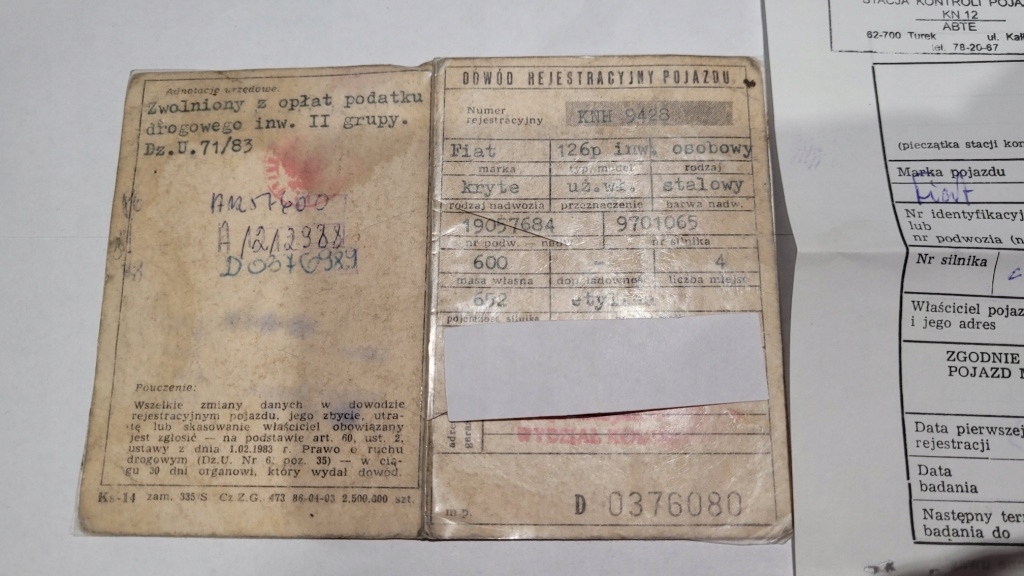 Adnotacje urzędowe:
Zwolniony z opłat podatku
drogowego inw. II grupy.
Dz.U.71/83
A 1212988
Pouczenie:
Wszelkie zmiany danych w dowodzie
rejestracyjnym pojazdu, jego zbycie, utra-
tę lub skasowanie właściciel obowiązany
jest zgłosić — na podstawie art. 60, ust. 2,
ustawy z dnia 1.02.1983 r. Prawo o ruchu
drogowym (Dz.U. Nr 6, poz. 35) — w cią-
gu 30 dni organowi, który wydał dowód.
Ks-14 zam. 335/S Cz Z.G. 473 86-04-03 2.500.000 szt.
DOWÓD REJESTRACYJNY POJAZDU
Numer
rejestracyjny
KNH 9428
Fiat 126p inw. osobowy
marka typ, model rodzaj
kryte uż.wł. stalowy
rodzaj nadwozia przeznaczenie barwa nadw.
19057684 9701065
nr podw. — nadw. nr silnika
600 - 4
masa własna dop. ładowność liczba miejsc
652 etylina
pojemność silnika
WYDZIAŁ
m.p.
D 0376080
STACJA KONTROLI
KN 12
ABTE
62-700 Turek ul.
tel. 78-20-67
(pieczątka stacji
Marka pojazdu
Fiat
Nr
lub
nr podwozia
Nr silnika
Właściciel
i jego adres
ZGODNIE
POJAZD
Data pierwszej
rejestracji
Data
badania
Następny
badania do